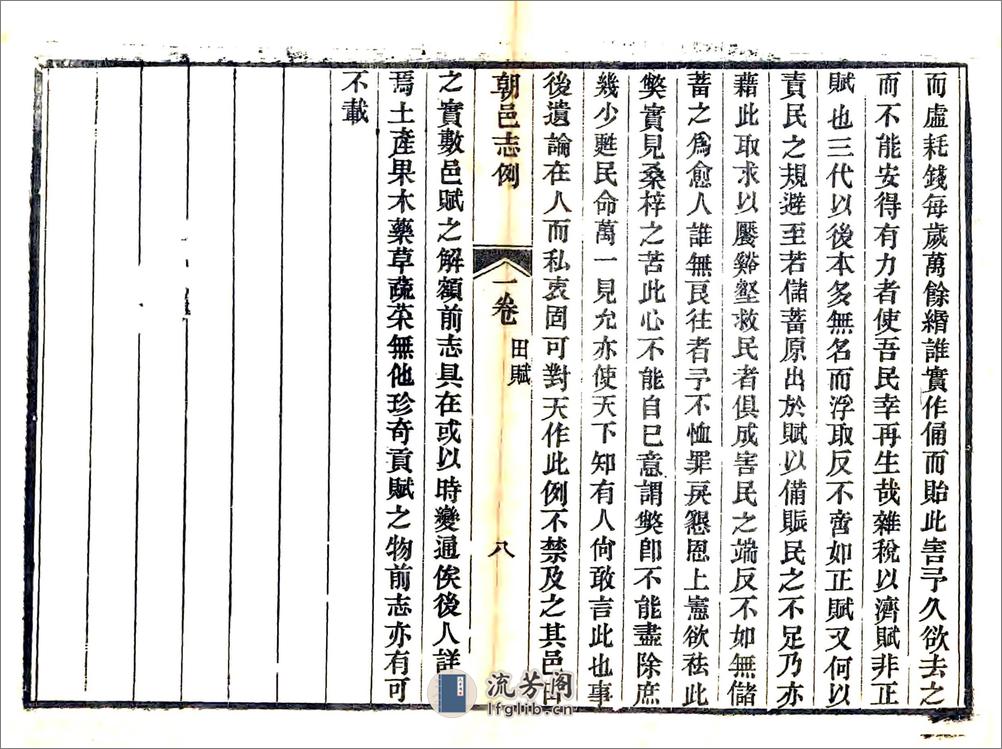 而虛耗錢每歲萬餘緡誰實作俑而貽此害予久欲去之
而不能安得有力者使吾民幸再生哉雜稅以濟賦非正
賦也三代以後本多無名而浮取反不啻如正賦又何以
責民之規避至若儲蓄原出於賦以備賑民之不足乃亦
藉此取求以饜谿壑救民者俱成害民之端反不如無儲
蓄之爲愈人誰無良往者予不恤罪戾懇恩上憲欲袪此
獘實見桑梓之苦此心不能自已意謂獘卽不能盡除庶
幾少甦民命萬一見允亦使天下知有人尙敢言此也事
後遺論在人而私衷固可對天作此例不禁及之其邑田
朝邑志例
一卷
田賦
八
之實數邑賦之解額前志具在或以時變通俟後人詳
焉土產果木藥草蔬菜無他珍奇貢賦之物前志亦有可
不載
流芳阁
lfglib.cn